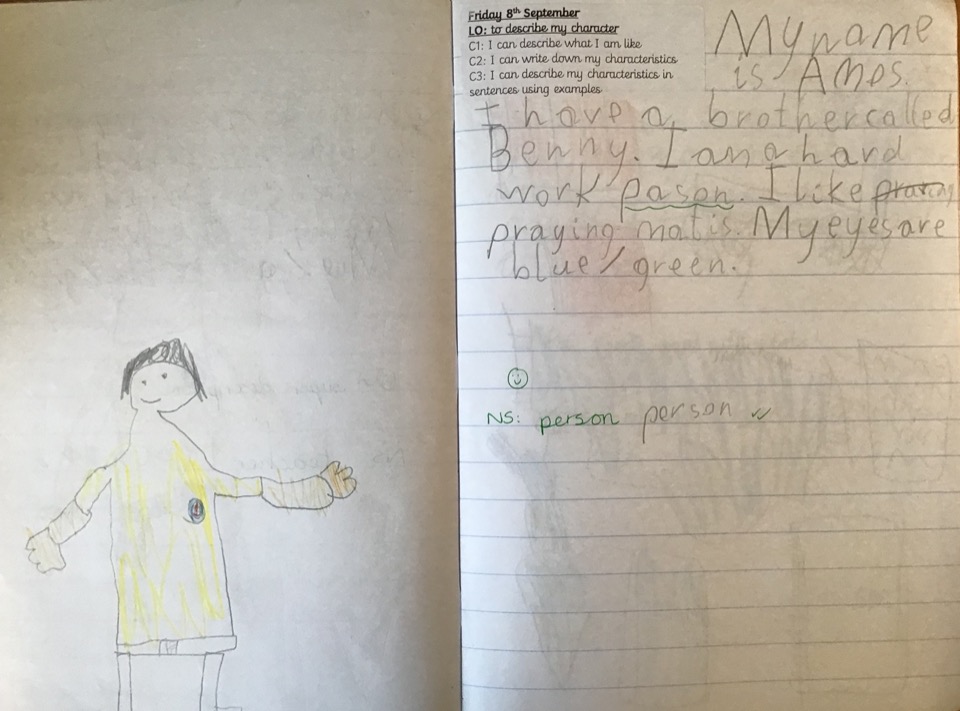 Friday 8th September
LO: to describe my character
C1: I can describe what I am like
C2: I can write down my characteristics
C3: I can describe my characteristics in
sentences using examples
My name
is Amos.
I have a brother called
Benny. I am a hard
work pason. I like
praying matis. My eyes are
blue/green.
NS: person person